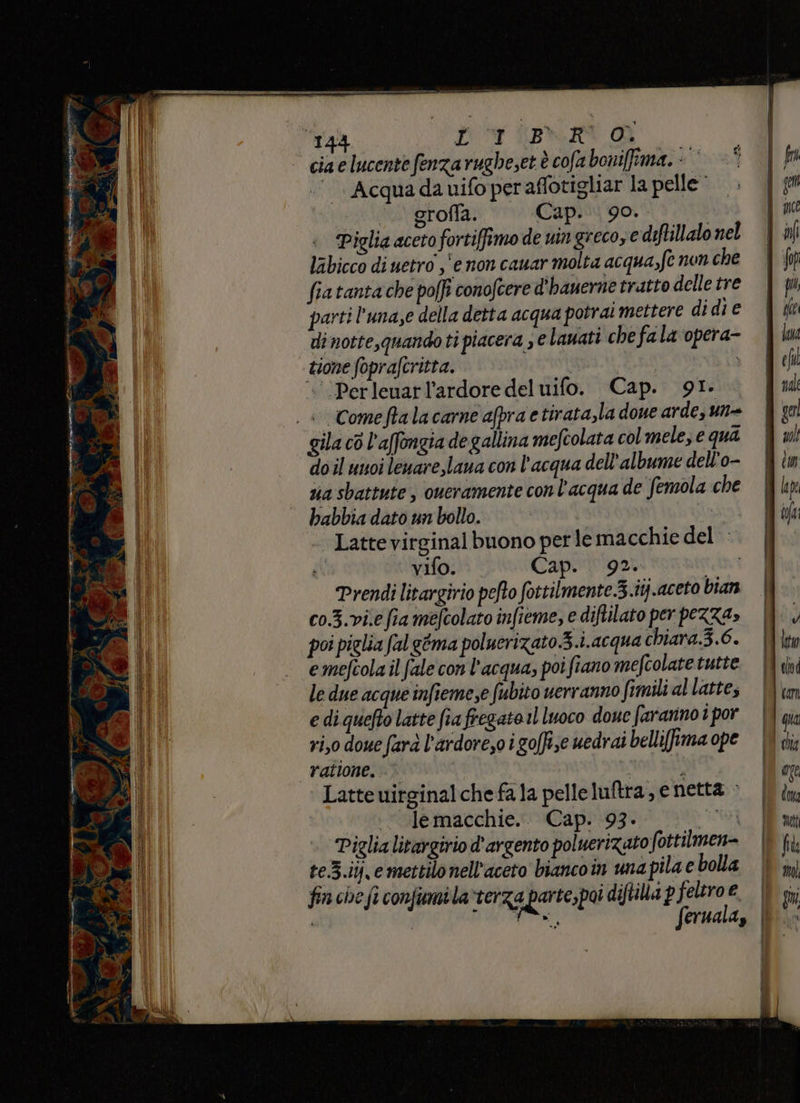 144 LIBRO
cia e lucente ſenza rughe, et è coſa boniſſima.
Acqua da uiſo per aſſotigliar la pelle
groſſa. Cap. 90.
Piglia aceto fortiſſimo de uin greco, e diſtillalo nel
làbicco di uetro, e non cauar molta acqua, ſe non che
ſia tanta che poſſi conoſcere d'hauerne tratto delle tre
parti l'una, e della detta acqua potrai mettere di dì e
di notte, quando ti piacera, e lauati che fa la opera-
tione ſopraſcritta.
Per leuar l'ardore del uiſo. Cap. 91.
Come ſta la carne aſpra e tirata, la doue arde, un-
gila cō l'aſſongia de gallina meſcolata col mele, e quā
do il uuoi leuare, laua con l'acqua dell'albume dell'o-
ua sbattute, oueramente con l'acqua de ſemola che
habbia dato un bollo.
Latte virginal buono per le macchie del
viſo. Cap. 92.
Prendi litargirio peſto ſottilmente.℥.iij.aceto bian
co.℥.vi.e ſia meſcolato inſieme, e diſtilato per pezza,
poi piglia ſal gēma poluerizato.℥.i.acqua chiara.℥.6.
e meſcola il ſale con l'acqua, poi ſiano meſcolate tutte
le due acque inſieme, e ſubito uerranno ſimili al latte,
e di queſto latte ſia fregato il luoco doue ſaranno i por
ri, o doue ſarà l'ardore, o i goſſi, e uedrai belliſſima ope
ratione.
Latte uirginal che fa la pelle luſtra, e netta
le macchie. Cap. 93.
Piglia litargirio d'argento poluerizato ſottilmen-
te.℥.iij. e mettilo nell'aceto bianco in una pila e bolla
fin che ſi conſumi la terza parte, poi diſtilla p feltro e
ſeruala,